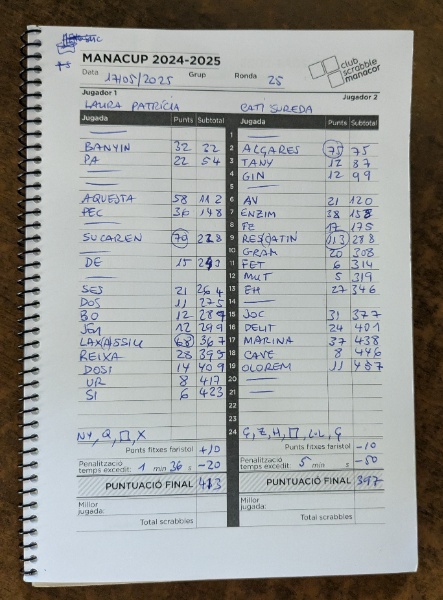 MANACUP 2024-2025
club scrabble manacor
Data 17/05/2025 Grup Ronda 25
Jugador 1 Jugador 2
LAURA PATRÍCIA CATI SUREDA
Jugada Punts Subtotal Jugada Punts Subtotal
1
BANYIN 32 32 2 ALGARES 75 75
PA 22 54 3 TANY 12 87
4 GIN 12 99
5
AQUESTA 58 112 6 AV 21 120
PEC 36 148 7 ENZIM 38 158
8 FE 17 175
SUCAREN 79 228 9 RES(C)ATIN 113 288
10 GRAM 20 308
DE 15 243 11 FET 6 314
12 MUT 5 319
SES 21 264 13 EH 27 346
DOS 11 275 14
BO 12 287 15 JOC 31 377
12 299 16 DELIT 24 401
LAX(A)SSIU 68 367 17 MARINA 37 438
REIXA 28 395 18 CAVE 8 446
DOSI 14 409 19 OLOREM 11 457
UR 8 417 20
SI 6 423 21
22
23
NY, Q, □, X 24 Ç, Z, H, □, L·L, Ç
Punts fitxes faristol +10 Punts fitxes faristol -10
Penalització temps excedit: 1 min 36 s -20 Penalització temps excedit: 5 min s -50
PUNTUACIÓ FINAL 413 PUNTUACIÓ FINAL 397
Millor jugada: Millor jugada:
Total scrabbles Total scrabbles